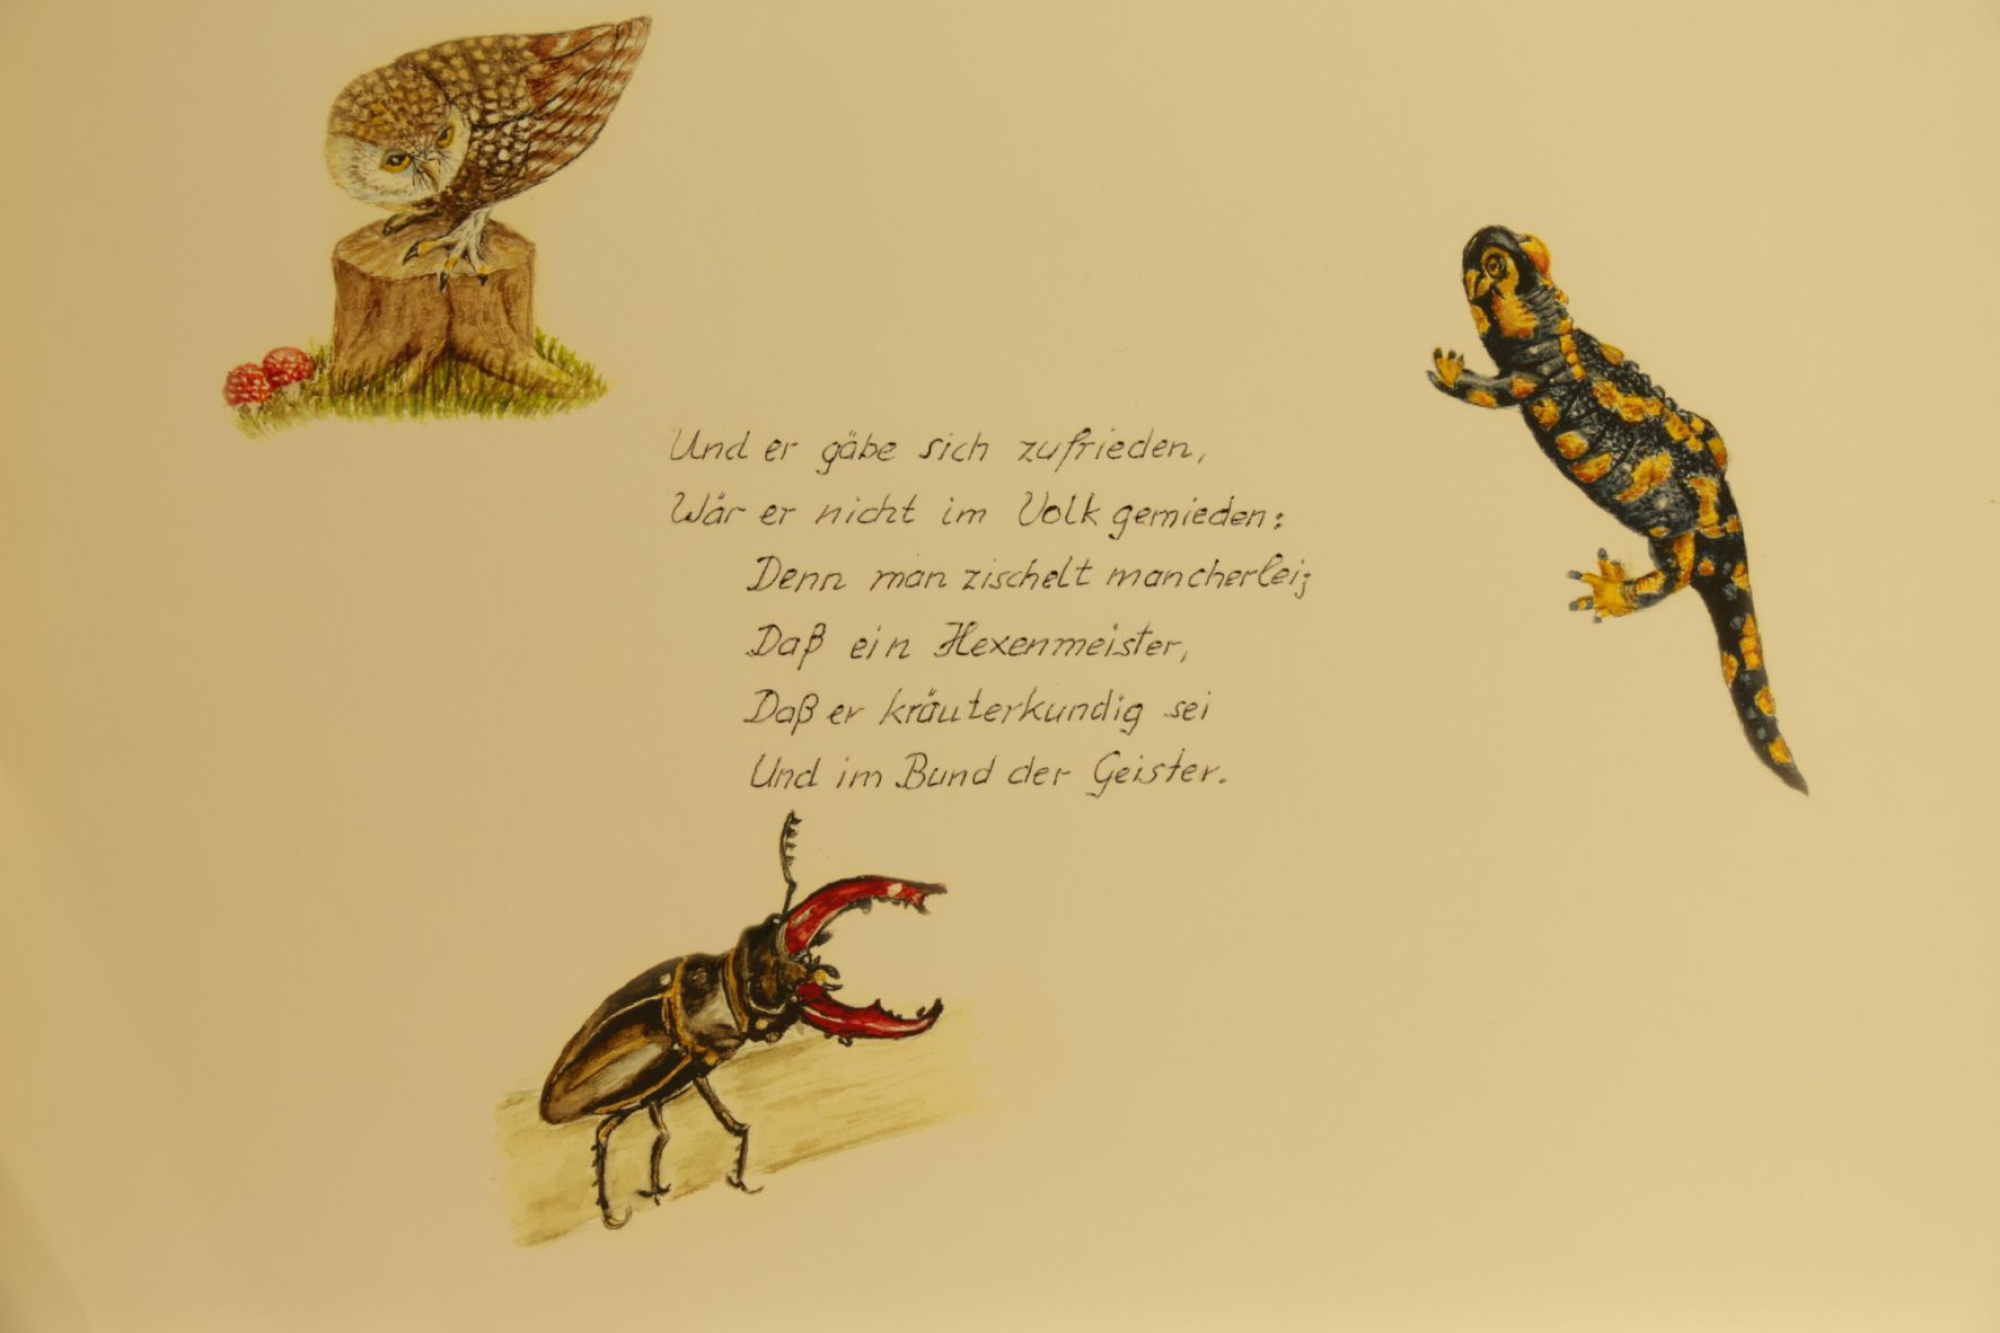 Und er gäbe sich zufrieden,
Wär er nicht im Volk gemieden:
Denn man zischelt mancherlei;
Daß ein Hexenmeister,
Daß er kräuterkundig sei
Und im Bund der Geister.